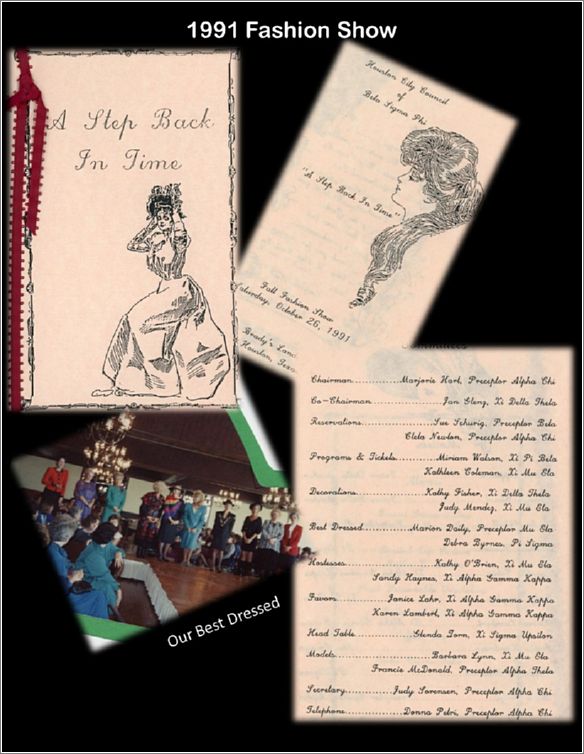 1991 Fashion Show
A Step Back
In Time
Houston City Council
of
Beta Sigma Phi
"A Step Back In Time"
Fall Fashion Show
Saturday, October 26, 1991
Brady's Land
Houston, Texa
Chairman..............Marjorie Hart, Preceptor Alpha Chi
Co-Chairman..................Jan Gleng, Xi Della Theta
Reservations................Sue Schurig, Preceptor Beta
Cleta Newton, Preceptor Alpha Chi
Programs & Tickets..........Miriam Watson, Xi Pi Beta
Kathleen Coleman, Xi Mu Eta
Decorations................Kathy Fisher, Xi Della Theta
Judy Mendez, Xi Mu Eta
Best Dressed..........Marion Daily, Preceptor Mu Eta
Debra Byrnes, Pi Sigma
Hostesses....................Kathy O'Brien, Xi Mu Eta
Sandy Haynes, Xi Alpha Gamma Kappa
Favors...............Janice Lahr, Xi Alpha Gamma Kappa
Karen Lambert, Xi Alpha Gamma Kappa
Head Table............Glenda Zorn, Xi Sigma Upsilon
Models......................Barbara Lynn, Xi Mu Eta
Francis McDonald, Preceptor Alpha Theta
Secretary..........Judy Sorensen, Preceptor Alpha Chi
Telephone............Donna Petri, Preceptor Alpha Chi
Our Best Dressed